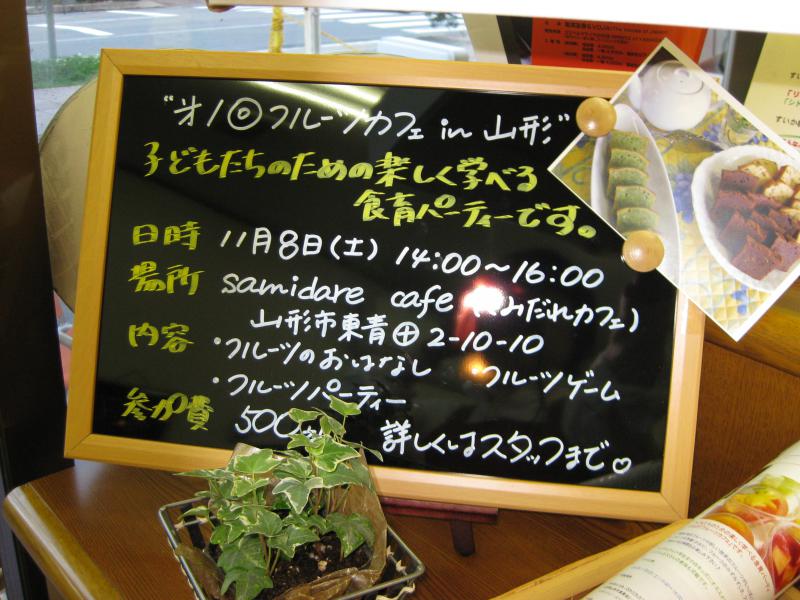 "オ1回フルーツカフェ in 山形"
子どもたちのための楽しく学べる
食育パーティーです。
日時 11月8日(土) 14:00〜16:00
場所 samidare cafe (みだれカフェ)
山形市東青田2-10-10
内容 ・フルーツのおはなし ・フルーツゲーム
・フルーツパーティー
参加費 500 詳しくはスタッフまで。